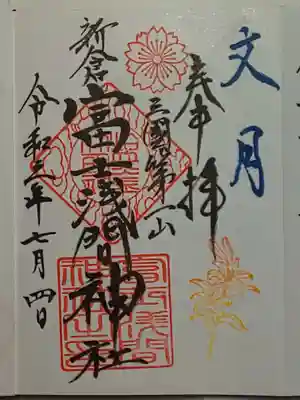 文月
奉拝
三國第一山
新倉富士浅間神社
令和元年七月四日